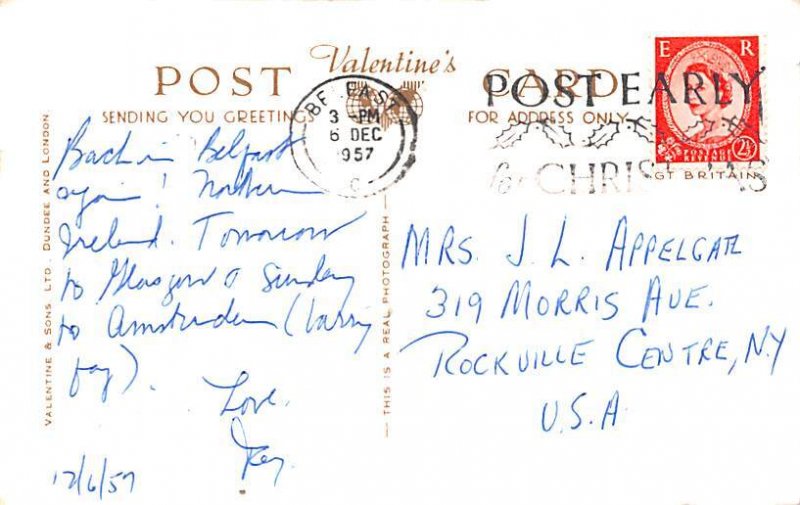 Valentine's
POST CARD
SENDING YOU GREETINGS
FOR ADDRESS ONLY
BELFAST
3 -PM
6 DEC
1957
C
POST EARLY
for CHRISTMAS
E R
POSTAGE
REVENUE
2½
GT BRITAIN
VALENTINE & SONS LTD. DUNDEE AND LONDON.
THIS IS A REAL PHOTOGRAPH
Back in Belfast
again! Northern
Ireland. Tomorrow
to Glasgow & Sunday
to Amsterdam (barring
fog).
Love.
12/6/57
MRS. J. L. APPELGATE
319 MORRIS AVE.
ROCKVILLE CENTRE, NY
U.S.A